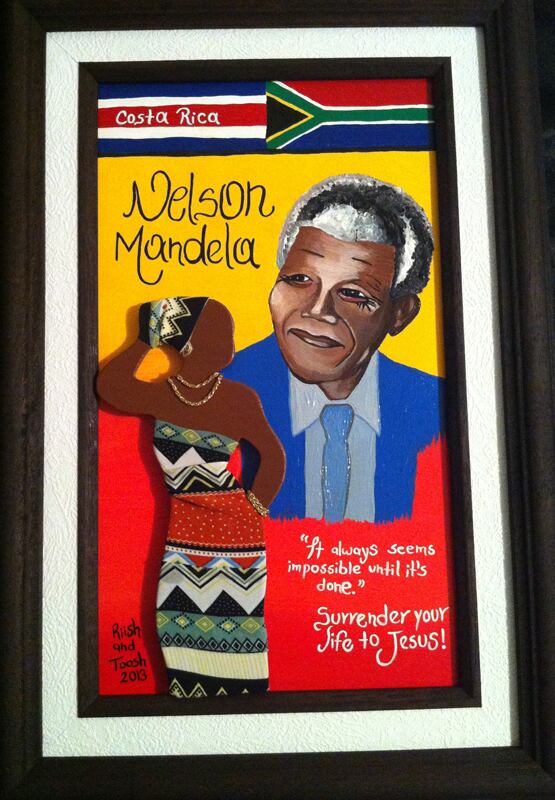 Costa Rica
Nelson
Mandela
"It always seems
impossible until it's
done."
Surrender your
life to Jesus!
Riish
and
Toosh
2013